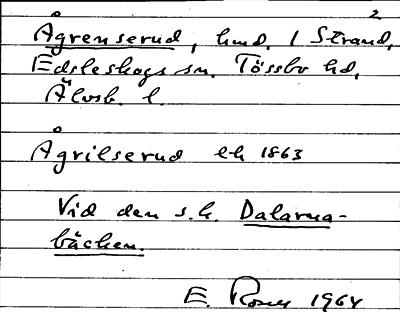 2
Ågrenserud, hmd. 1 Strand,
Edsleskogs sn. Tössbo hd,
Älvsb. l.
Ågrilserud lh 1863
Vid den s.k. Dalarna-
bäcken.
E. 1964